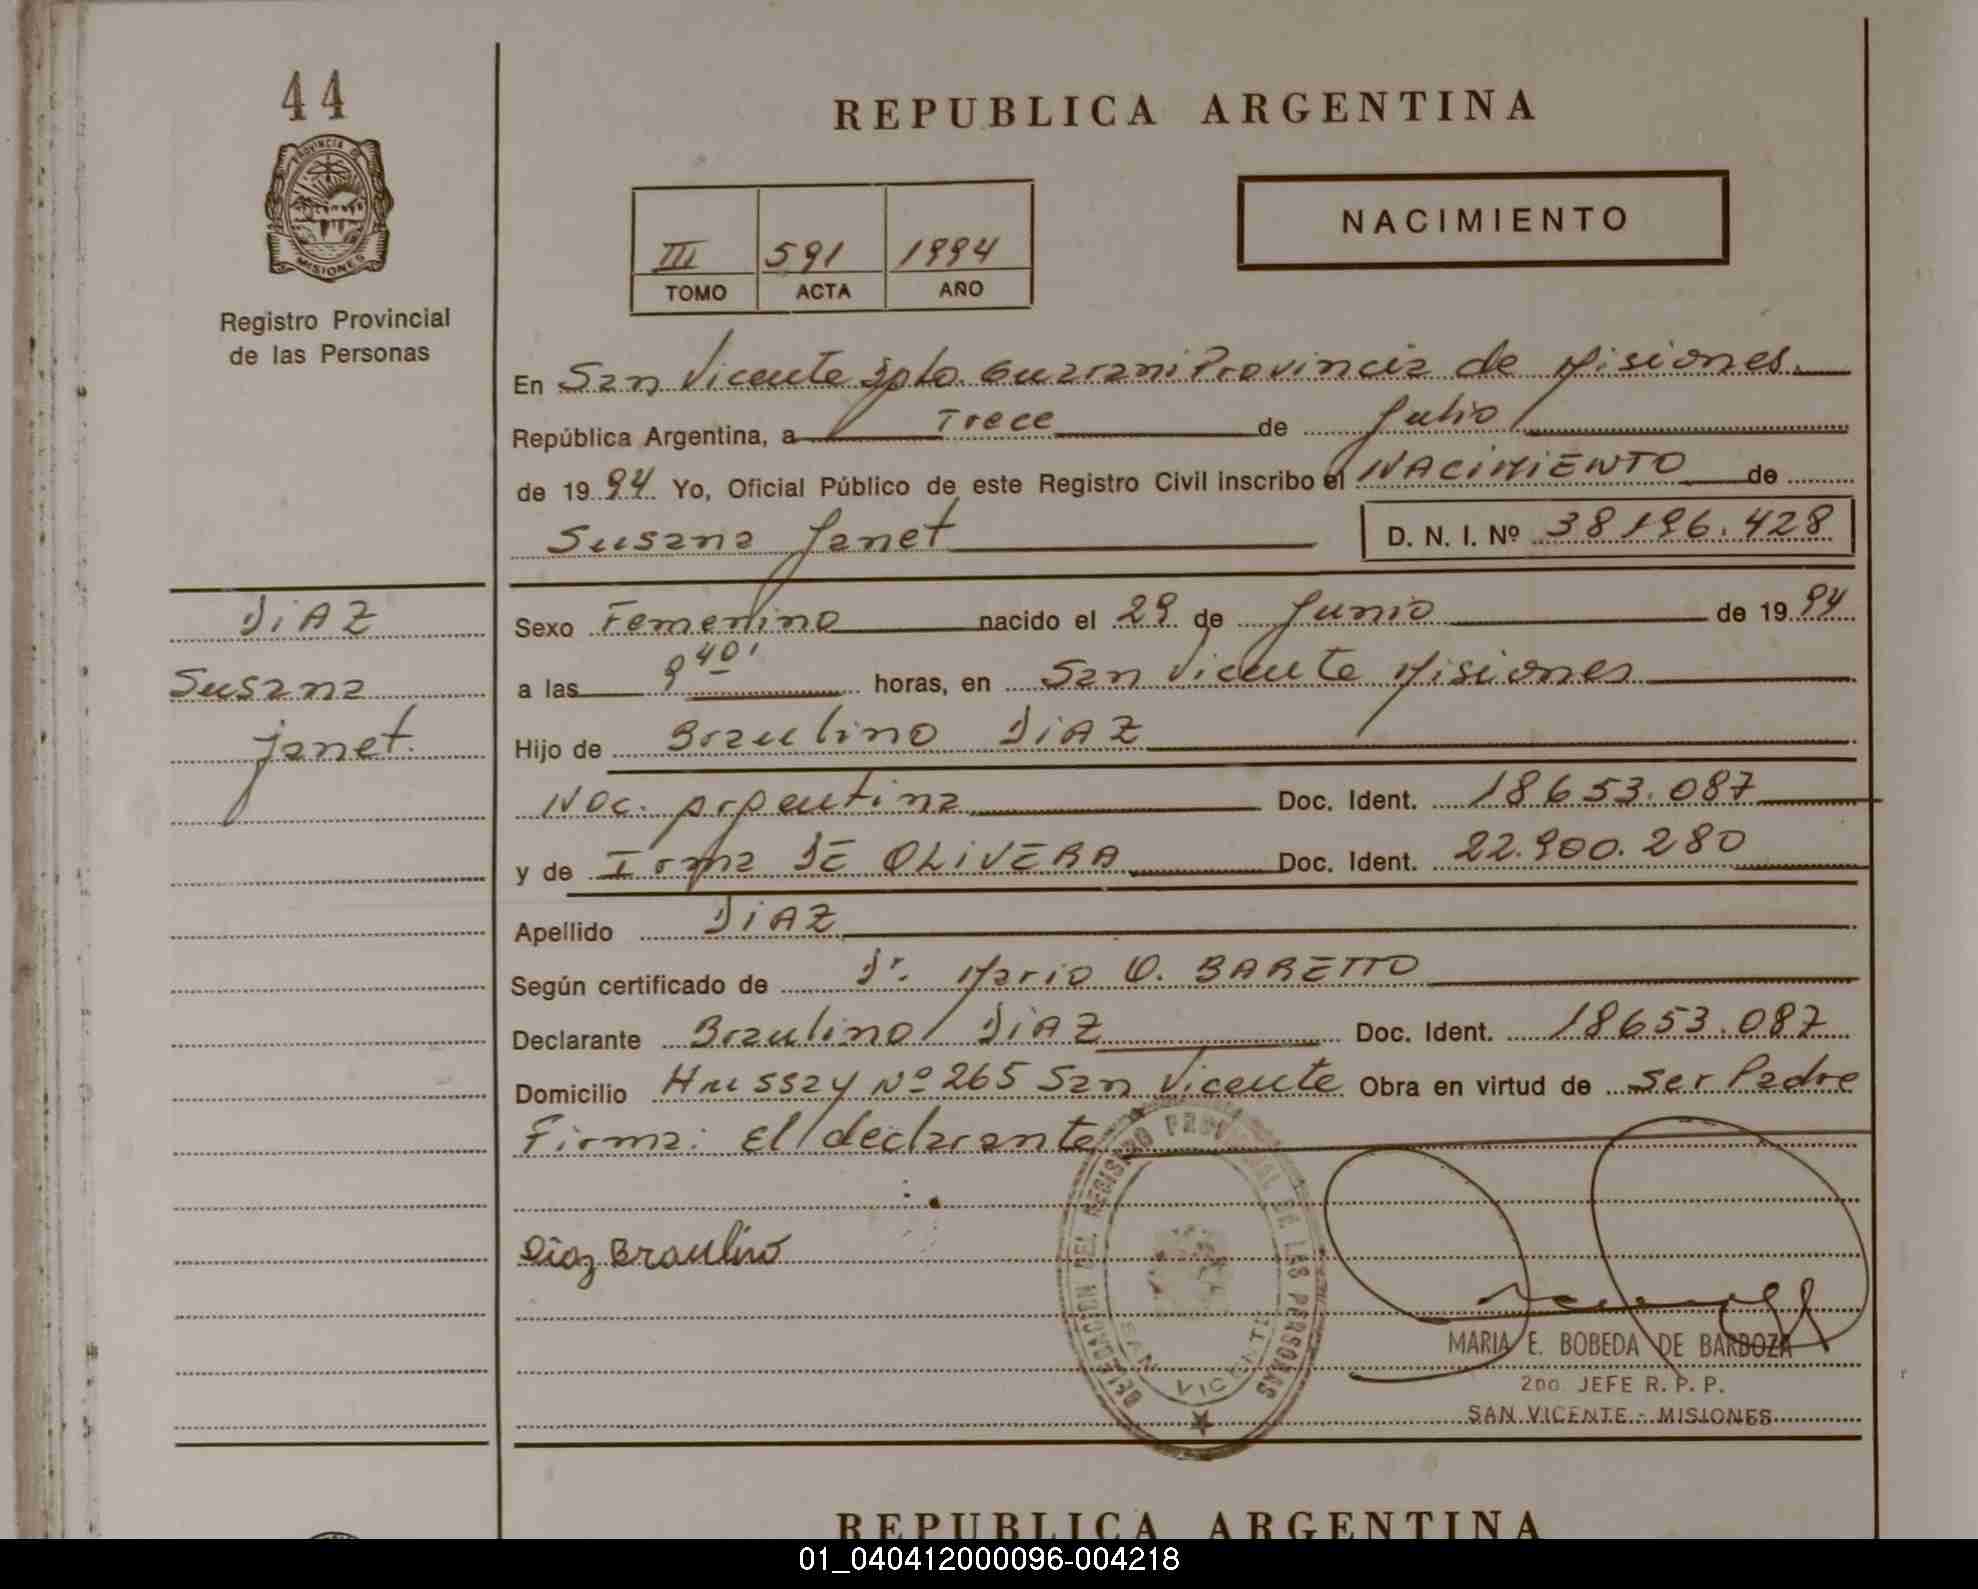 44
PROVINCIA DE
MISIONES
Registro Provincial
de las Personas
REPUBLICA ARGENTINA
NACIMIENTO
III 591 1994
TOMO ACTA AÑO
En San Vicente Dpto. Guarani Provincia de Misiones.
República Argentina, a Trece de Julio
de 1994 Yo, Oficial Público de este Registro Civil inscribo el NACIMIENTO de
Susana Janet D. N. I. Nº 38196.428
DiAZ
Susana
Janet.
Sexo Femenino nacido el 29 de Junio de 1994
a las 9 40' horas, en San Vicente Misiones
Hijo de Braulino DiAZ
Nac. Argentina Doc. Ident. 18653.087
y de Irma DE OLIVERA Doc. Ident. 22.900.280
Apellido DiAZ
Según certificado de Dr. Mario O. BARETTO
Declarante Braulino DiAZ Doc. Ident. 18653.087
Domicilio Hussay Nº 265 San Vicente Obra en virtud de ser Padre
Firma: El declarante
Diaz Braulino
DELEGACION DEL REGISTRO PROVINCIAL DE LAS PERSONAS
SAN VICENTE
MARIA E. BOBEDA DE BARBOZA
2DO. JEFE R. P. P.
SAN VICENTE - MISIONES
REPUBLICA ARGENTINA
01_040412000096-004218